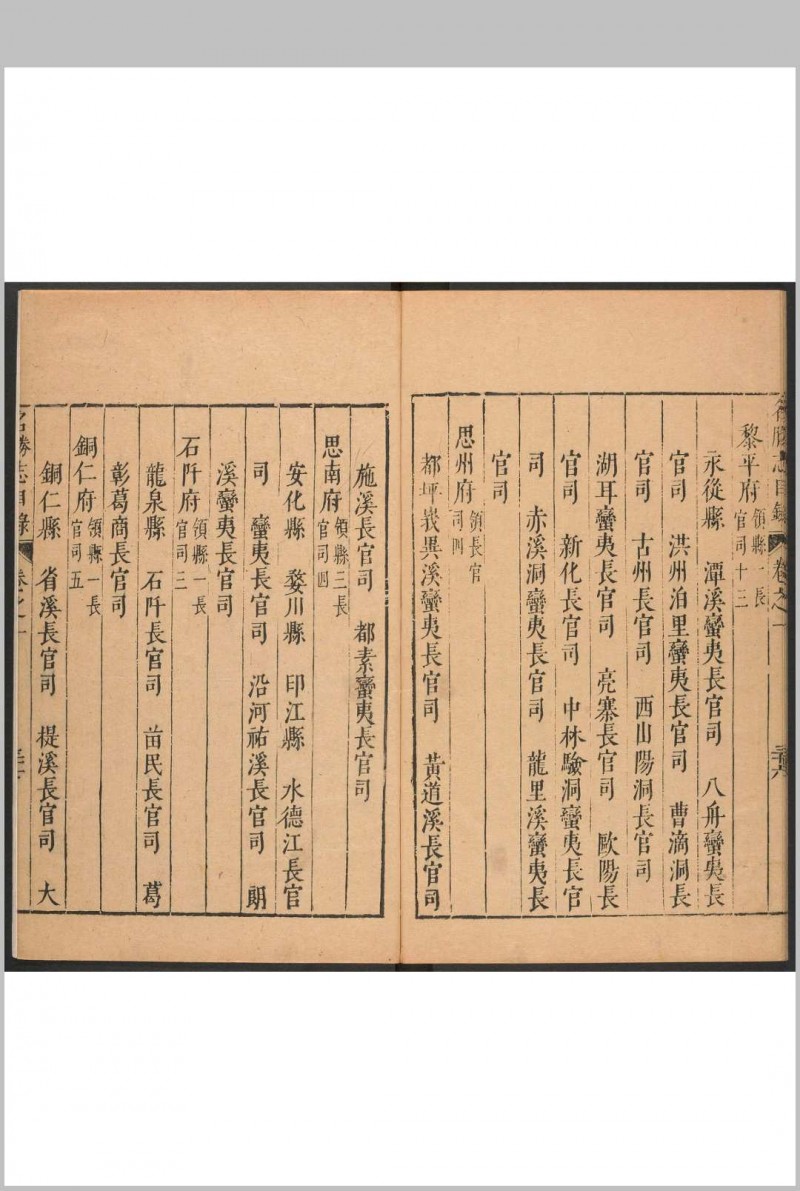 名勝志目錄 卷之一
黎平府 領縣一長官司十三
永從縣 潭溪蠻夷長官司 八舟蠻夷長
官司 洪州泊里蠻夷長官司 曹滴洞長
官司 古州長官司 西山陽洞長官司
湖耳蠻夷長官司 亮寨長官司 歐陽長
官司 新化長官司 中林驗洞蠻夷長官
司 赤溪洞蠻夷長官司 龍里溪蠻夷長
官司
思州府 領長官司四
都坪峩異溪蠻夷長官司 黃道溪長官司
施溪長官司 都素蠻夷長官司
思南府 領縣三長官司四
安化縣 婺川縣 印江縣 水德江長官
司 蠻夷長官司 沿河祐溪長官司 朗
溪蠻夷長官司
石阡府 領縣一長官司三
龍泉縣 石阡長官司 苗民長官司 葛
彰葛商長官司
銅仁府 領縣一長官司五
銅仁縣 省溪長官司 提溪長官司 大
名勝志目錄 卷之一